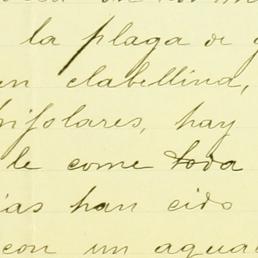 la plaga de g
en clabellina,
nifolares, hay
le come toda
ias han cido
con un aguac